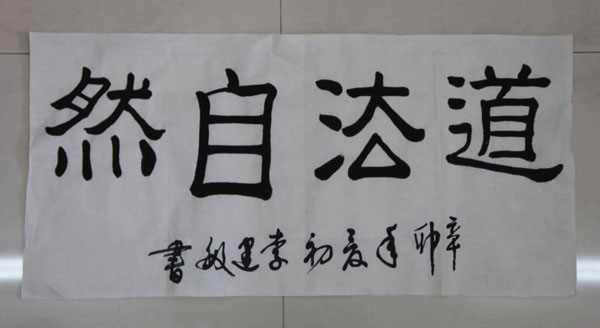 道法自然
辛卯年夏初李建敏書